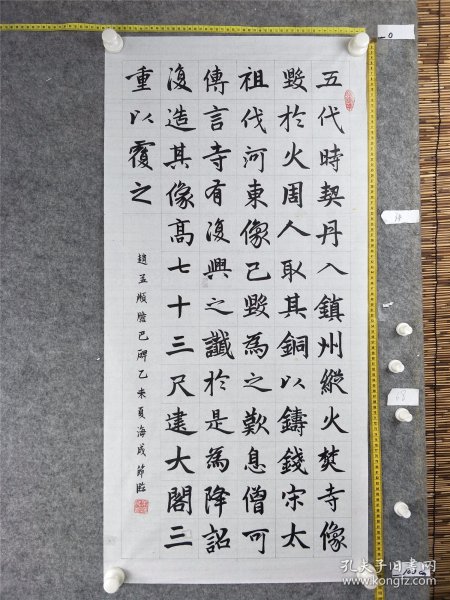 五代時契丹入鎮州縱火焚寺像
毀於火周人取其銅以鑄錢宋太
祖伐河東像已毀為之歎息僧可
傳言寺有復興之讖於是為降詔
復造其像高七十三尺建大閣三
重以覆之
趙孟頫膽巴碑乙未夏海成節臨
孔夫子旧书网
kongfz.com
0
68